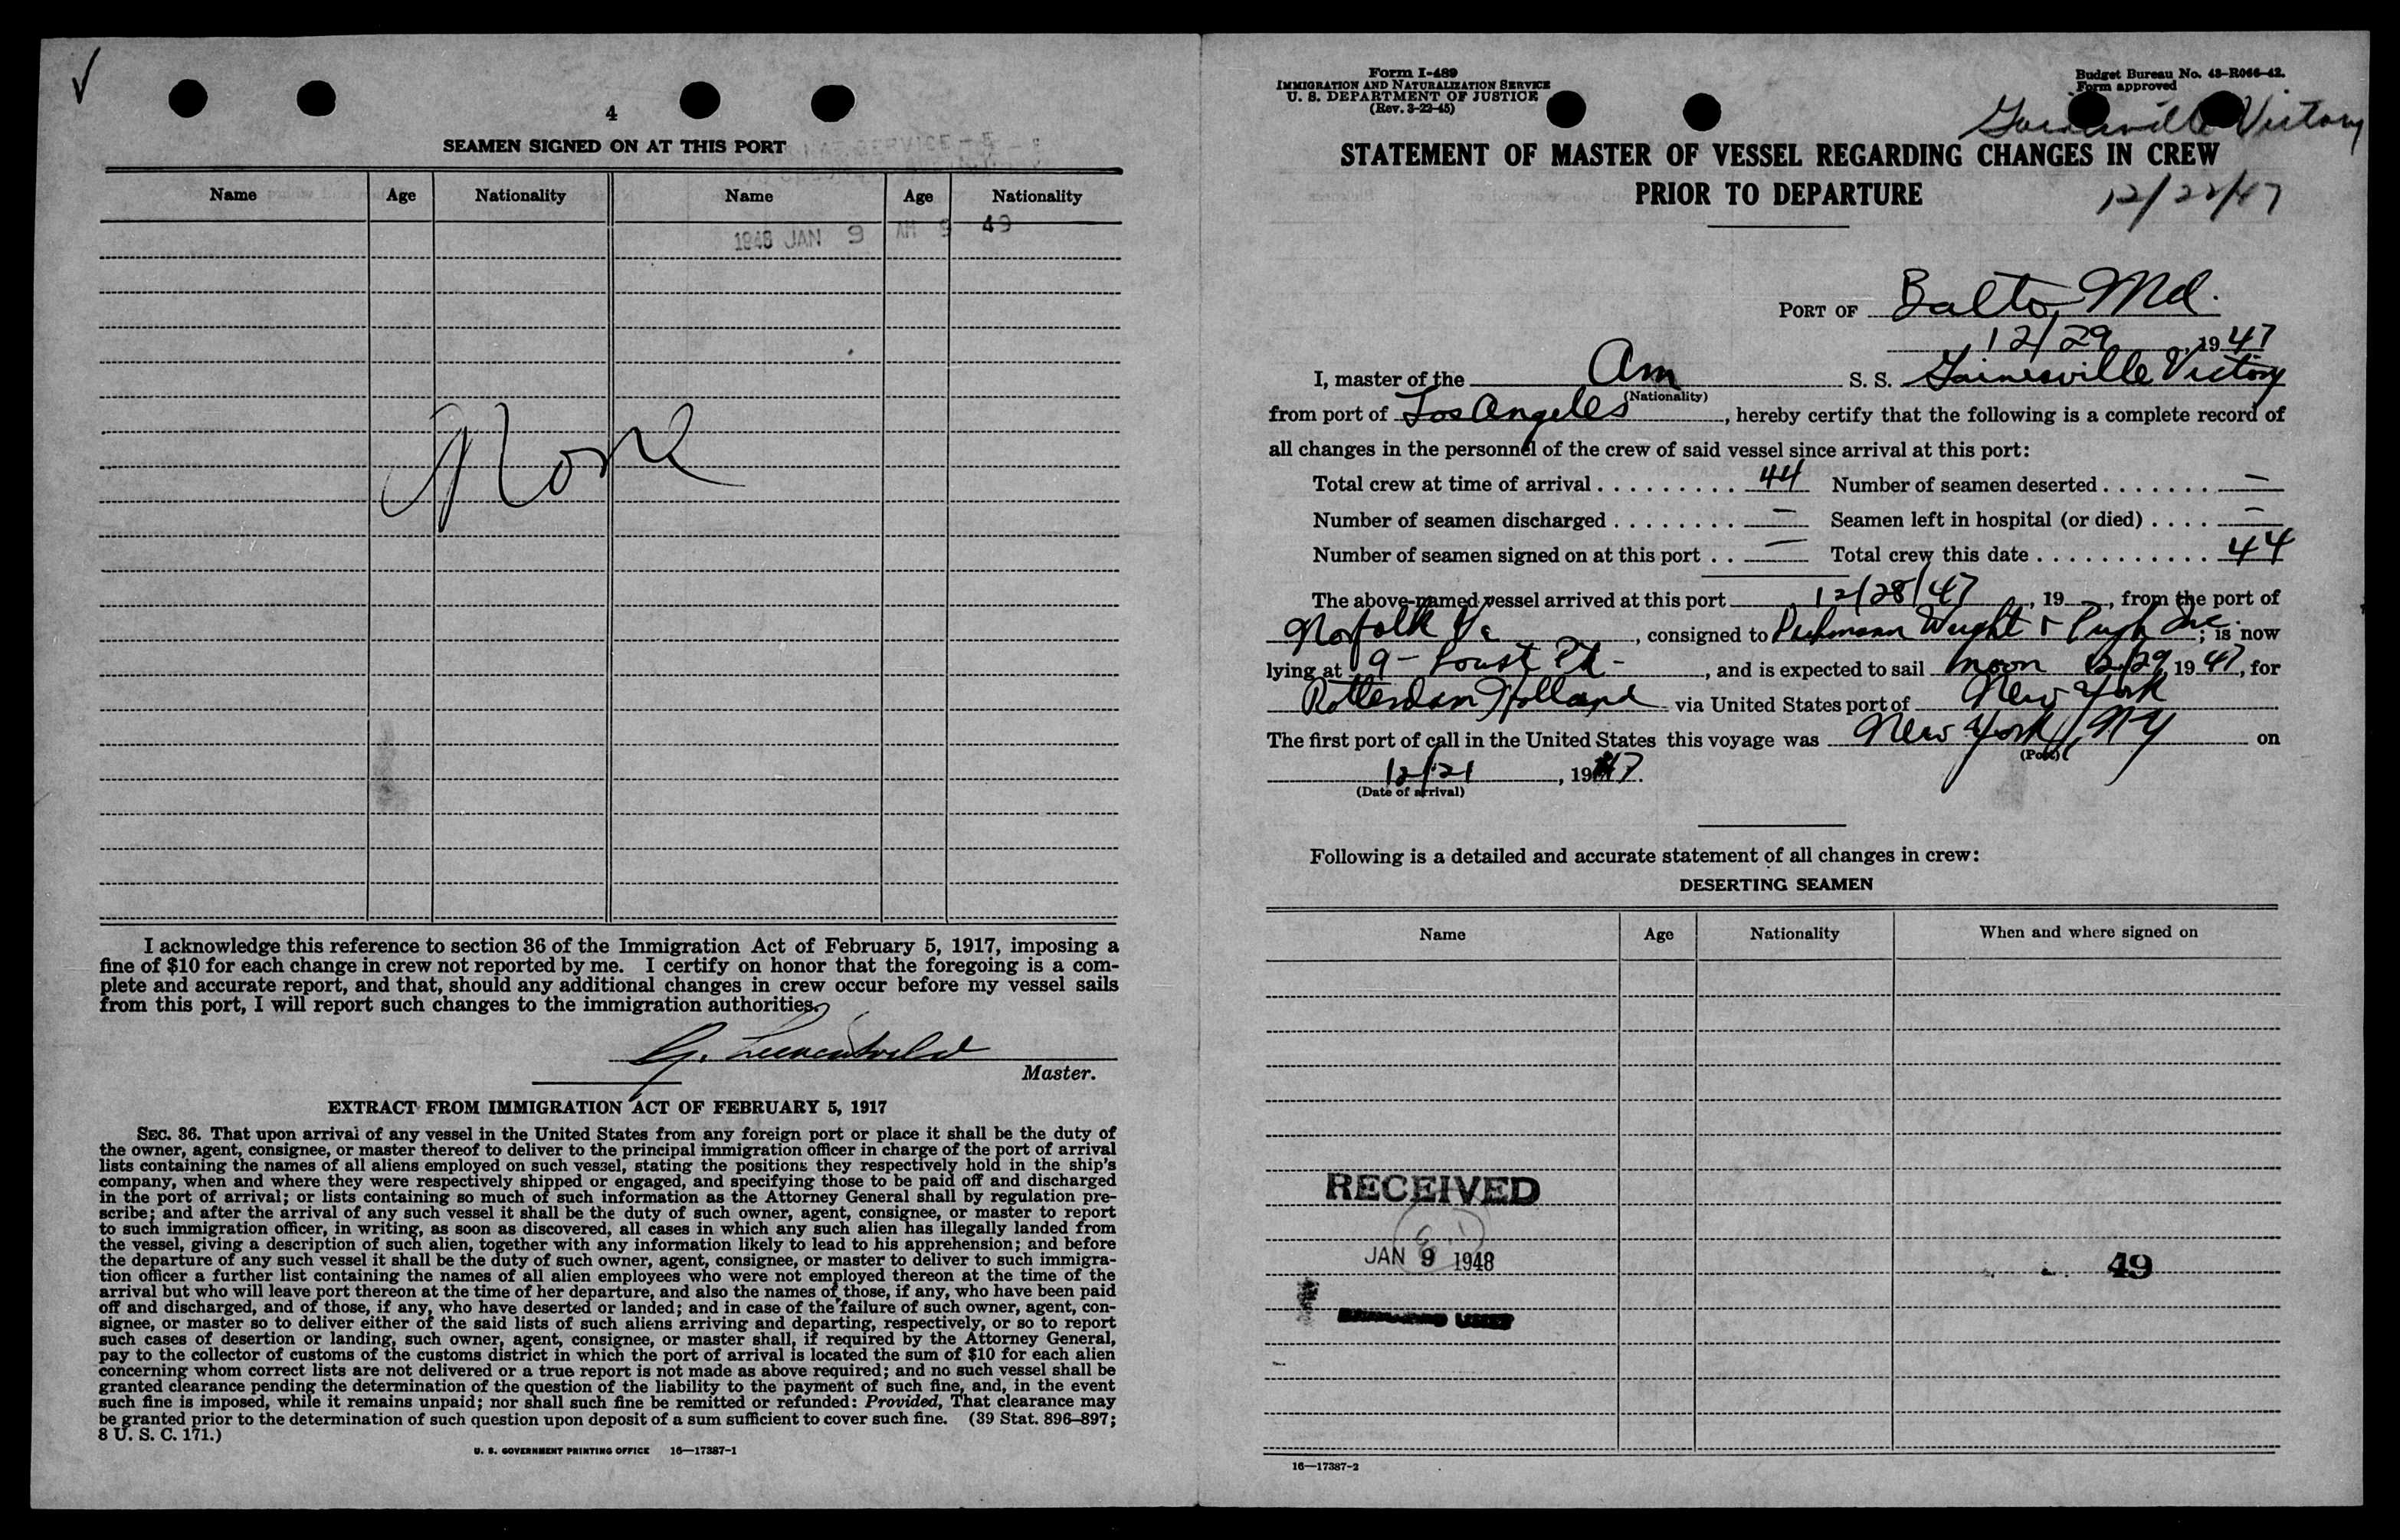 4
SEAMEN SIGNED ON AT THIS PORT
Name Age Nationality Name Age Nationality
1948 JAN 9 AM 9 49
None
I acknowledge this reference to section 36 of the Immigration Act of February 5, 1917, imposing a
fine of $10 for each change in crew not reported by me. I certify on honor that the foregoing is a com-
plete and accurate report, and that, should any additional changes in crew occur before my vessel sails
from this port, I will report such changes to the immigration authorities.
G.
Master.
EXTRACT FROM IMMIGRATION ACT OF FEBRUARY 5, 1917
SEC. 36. That upon arrival of any vessel in the United States from any foreign port or place it shall be the duty of
the owner, agent, consignee, or master thereof to deliver to the principal immigration officer in charge of the port of arrival
lists containing the names of all aliens employed on such vessel, stating the positions they respectively hold in the ship's
company, when and where they were respectively shipped or engaged, and specifying those to be paid off and discharged
in the port of arrival; or lists containing so much of such information as the Attorney General shall by regulation pre-
scribe; and after the arrival of any such vessel it shall be the duty of such owner, agent, consignee, or master to report
to such immigration officer, in writing, as soon as discovered, all cases in which any such alien has illegally landed from
the vessel, giving a description of such alien, together with any information likely to lead to his apprehension; and before
the departure of any such vessel it shall be the duty of such owner, agent, consignee, or master to deliver to such immigra-
tion officer a further list containing the names of all alien employees who were not employed thereon at the time of the
arrival but who will leave port thereon at the time of her departure, and also the names of those, if any, who have been paid
off and discharged, and of those, if any, who have deserted or landed; and in case of the failure of such owner, agent, con-
signee, or master so to deliver either of the said lists of such aliens arriving and departing, respectively, or so to report
such cases of desertion or landing, such owner, agent, consignee, or master shall, if required by the Attorney General,
pay to the collector of customs of the customs district in which the port of arrival is located the sum of $10 for each alien
concerning whom correct lists are not delivered or a true report is not made as above required; and no such vessel shall be
granted clearance pending the determination of the question of the liability to the payment of such fine, and, in the event
such fine is imposed, while it remains unpaid; nor shall such fine be remitted or refunded: Provided, That clearance may
be granted prior to the determination of such question upon deposit of a sum sufficient to cover such fine. (39 Stat. 896–897;
8 U. S. C. 171.)
U. S. GOVERNMENT PRINTING OFFICE 16—17387-1
Form I-489
IMMIGRATION AND NATURALIZATION SERVICE
U. S. DEPARTMENT OF JUSTICE
(Rev. 3-22-45)
Budget Bureau No. 43-R066-42.
Form approved
Gainesville Victory
STATEMENT OF MASTER OF VESSEL REGARDING CHANGES IN CREW
PRIOR TO DEPARTURE
12/22/47
PORT OF Balto, Md.
12/29, 1947
I, master of the Am S. S. Gainesville Victory
(Nationality)
from port of Los Angeles, hereby certify that the following is a complete record of
all changes in the personnel of the crew of said vessel since arrival at this port:
Total crew at time of arrival . . . . . . . . . 44 Number of seamen deserted . . . . . . . —
Number of seamen discharged . . . . . . . . — Seamen left in hospital (or died) . . . . —
Number of seamen signed on at this port . . — Total crew this date . . . . . . . . . . . . 44
The above-named vessel arrived at this port 12/28/47, 19, from the port of
Norfolk Va, consigned to Wright & Pugh Inc; is now
lying at 9 - Locust Pt -, and is expected to sail noon 12/29, 1947, for
Rotterdam Holland via United States port of New York
The first port of call in the United States this voyage was New York, NY on
(Port)
12/21, 1947.
(Date of arrival)
Following is a detailed and accurate statement of all changes in crew:
DESERTING SEAMEN
Name Age Nationality When and where signed on
RECEIVED
JAN 9 1948
49
16—17387-2